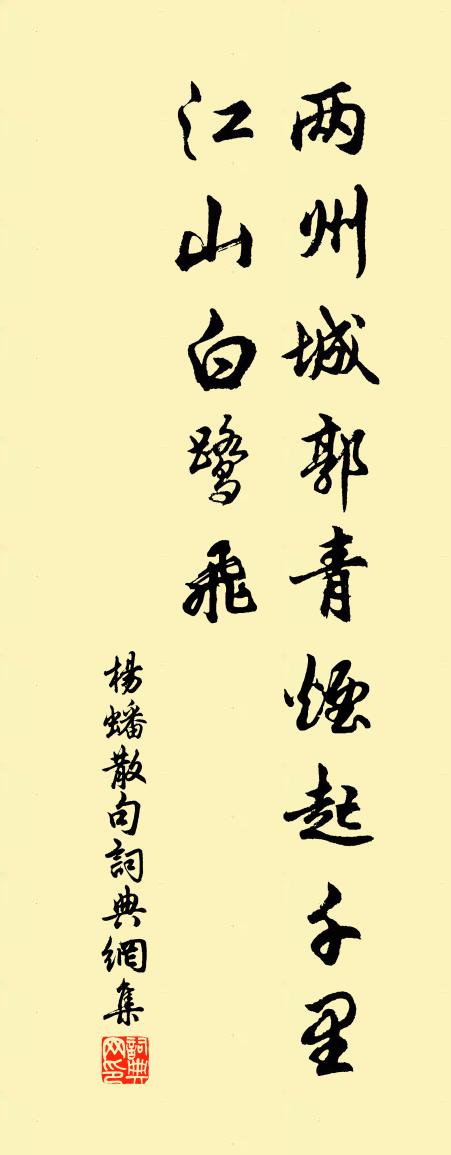 两州城郭青煙起千里
江山白鹭飛
楊蟠散句詞典網集
詞典網印